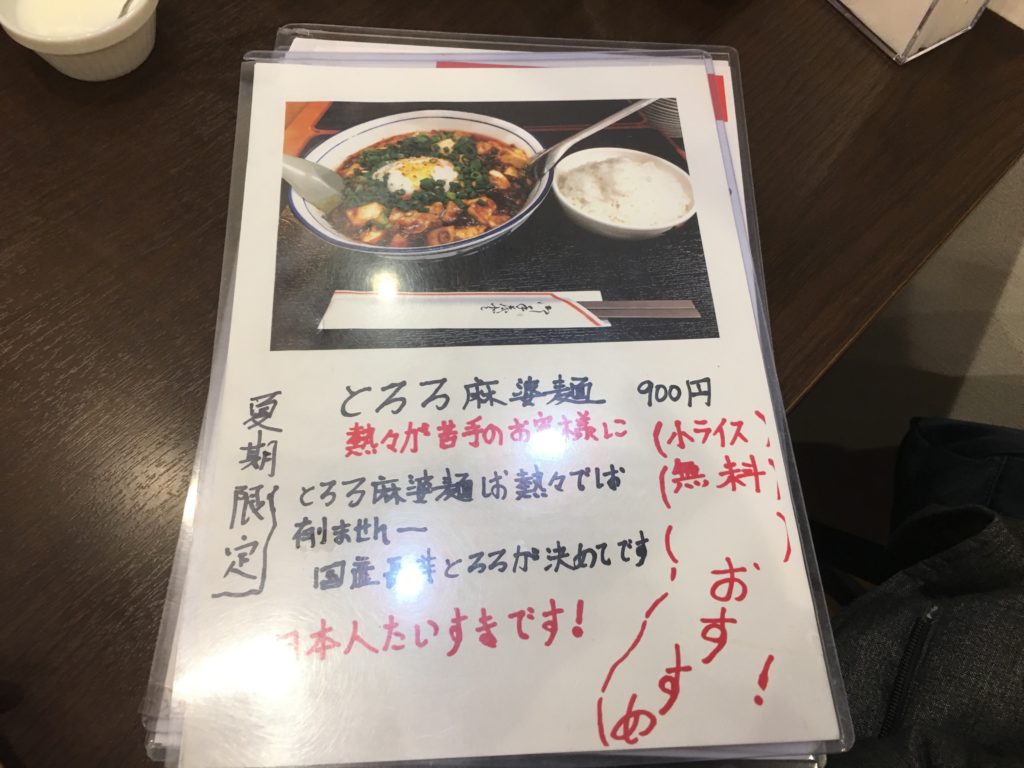 とろろ麻婆麺 900円
熱々が苦手のお客様に
(小ライス)
(無料)
夏期限定
とろろ麻婆麺は熱々では
有りません一
国産長芋とろろが決めてです
日本人たいすきです!
おすすめ!